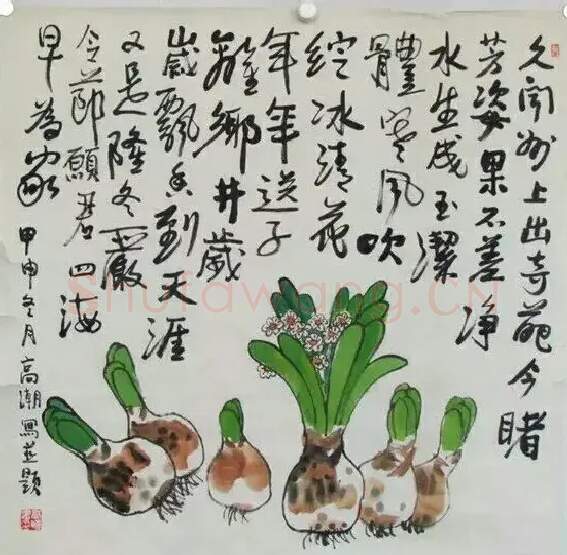 久闻州上出奇葩今睹
芳姿果不差净
水生成玉潔
體寒风吹
綻冰清花
年年送子
離鄉井歲
歲飄香到天涯
又是隆冬嚴
令節願君四海
早為家
甲申冬月高潮寫並題
Shufawang.CN